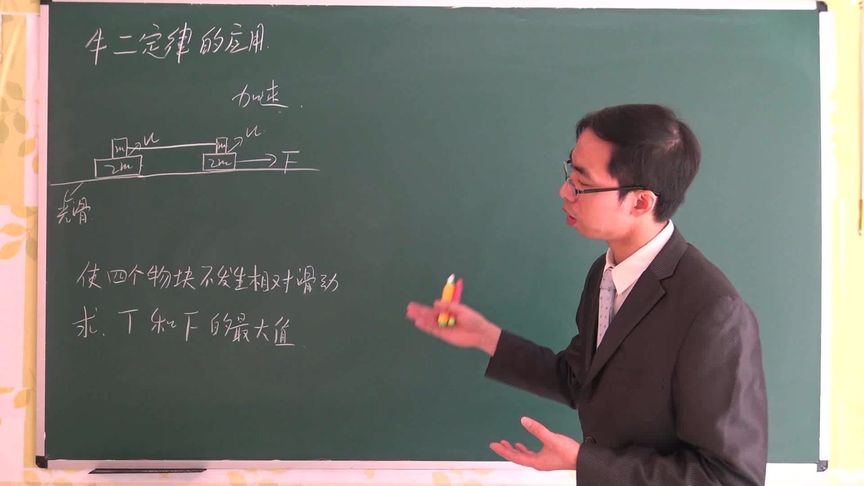 牛二定律的应用.
加速.
m u m u
2m 2m F
光滑
使四个物块不发生相对滑动
求. T和F的最大值.